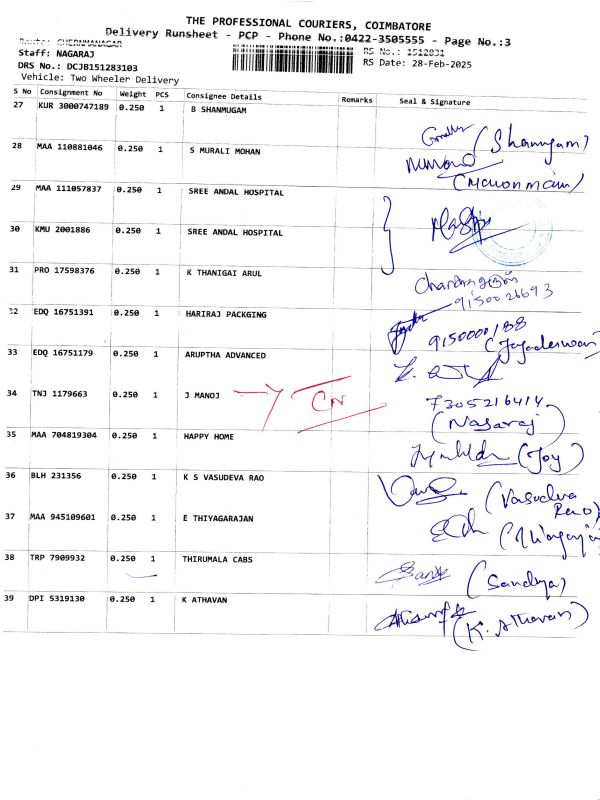 THE PROFESSIONAL COURIERS, COIMBATORE
Delivery Runsheet - PCP - Phone No.:0422-3505555 - Page No.:3
Staff: NAGARAJ
RS No.: 1512831
DRS No.: DCJB151283103
RS Date: 28-Feb-2025
Vehicle: Two Wheeler Delivery
S No Consignment No Weight PCS Consignee Details Remarks Seal & Signature
27 KUR 3000747189 0.250 1 B SHANMUGAM
(Shanmugam)
28 MAA 110881046 0.250 1 S MURALI MOHAN
29 MAA 111057837 0.250 1 SREE ANDAL HOSPITAL
30 KMU 2001886 0.250 1 SREE ANDAL HOSPITAL
31 PRO 17598376 0.250 1 K THANIGAI ARUL
9150026693
32 EDQ 16751391 0.250 1 HARIRAJ PACKGING
9150000188
(Jayadeswari)
33 EDQ 16751179 0.250 1 ARUPTHA ADVANCED
34 TNJ 1179663 0.250 1 J MANOJ CN
7305216414
(Nagaraj)
35 MAA 704819304 0.250 1 HAPPY HOME
(Joy)
36 BLH 231356 0.250 1 K S VASUDEVA RAO
(Vasudeva
Rao)
37 MAA 945109601 0.250 1 E THIYAGARAJAN
38 TRP 7909932 0.250 1 THIRUMALA CABS
(Sandhya)
39 DPI 5319130 0.250 1 K ATHAVAN
(K. Athavan)